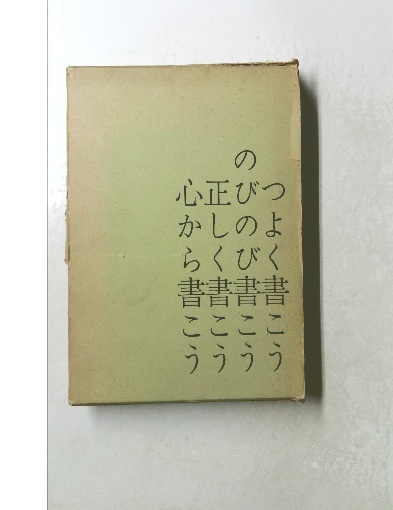 つよく書こう
のびのび書こう
正しく書こう
心から書こう